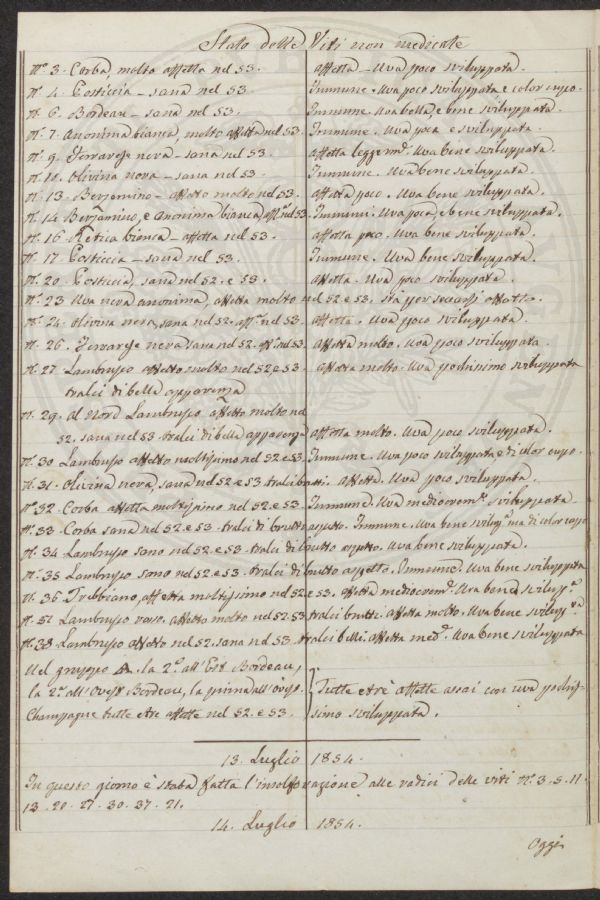 Stato delle Viti non medicate
N.º 3. Corba, molto affetta nel 53. affetta - Uva poco sviluppata.
N. 4. Posticcia - sana nel 53. Immune. Uva poco sviluppata e color cupo.
N. 6. Bordeau - sana nel 53. Immune. Uva bella, e bene sviluppata.
N. 7. Anonima bianca, molto affetta nel 53. Immune. Uva poca e sviluppata.
N. 9. Terrarese nera - sana nel 53. affetta leggerm.e Uva bene sviluppata.
N. 10. Olivina nera - sana nel 53. Immune. Uva bene sviluppata.
N. 13. Berzemino - affetto molto nel 53. affetta poco. Uva bene sviluppata.
N. 14. Berzemino, e anonima bianca aff.ti nel 53 Immuni. Uva poca e bene sviluppata.
N. 16. Retica bianca - affetta nel 53. affetta poco. Uva bene sviluppata.
N. 17. Posticcia - sana nel 53. Immune. Uva bene sviluppata.
N. 20. Posticcia, sana nel 52. e 53. affetta. Uva poco sviluppata.
N.º 23 Uva nera anonima, affetta molto nel 52 e 53. sta per seccarsi affetta.
N. 24. Olivina nera, sana nel 52. aff.a nel 53. affetta. Uva poco sviluppata.
N. 26. Terrarese nera, sana nel 52. aff.a nel 53. affetta molto. Uva poco sviluppata.
N. 27. Lambrusco affetto molto nel 52 e 53 affetta molto. Uva pochissimo sviluppata
tralci di bella apparenza
N. 29. al Nord Lambrusco affetto molto nel
52. sana nel 53. tralci di bella apparenza affetta molto. Uva poco sviluppata.
N. 30 Lambrusco affetto moltissimo nel 52 e 53. Immune. Uva poco sviluppata e di color cupo.
N. 31. Olivina nera, sana nel 52 e 53 tralci brutti. affetta. Uva poco sviluppata.
N.º 32. Corba affetta moltissimo nel 52. e 53. Immune. Uva mediocrem.e sviluppata.
N.º 33. Corba sana nel 52. e 53. tralci di brutto aspetto. Immune. Uva bene svilup.a ma di color cupo
N. 34. Lambrusco sano nel 52. e 53. tralci di brutto aspetto. Uva bene sviluppata.
N. 35 Lambrusco sano nel 52. e 53. tralci di brutto aspetto. Immune. Uva bene sviluppata
N. 36. Trebbiano, affetta moltissimo nel 52 e 53. affetta mediocrem.e Uva bene svilupp.a
N. 51 Lambrusco affetto molto nel 52. 53 tralci brutti. affetta molto. Uva bene svilupp.a
N. 38. Lambrusco affetto nel 52. sana nel 53. tralci belli. affetta med.e Uva bene sviluppata
Nel gruppo A. la 2.a all'Est Bordeau,
la 2.a all'Ovest Bordeau, la prima all'Ovest Tutte e tre affette assai con uva pochis-
Champagne tutte e tre affette nel 52. e 53. simo sviluppata.
13. Luglio 1854.
In questo giorno è stata fatta l'insolforazione alle radici delle viti N.º 3. 5. 11.
13. 20. 27. 30. 37. 21.
14. Luglio 1854.
Oggi